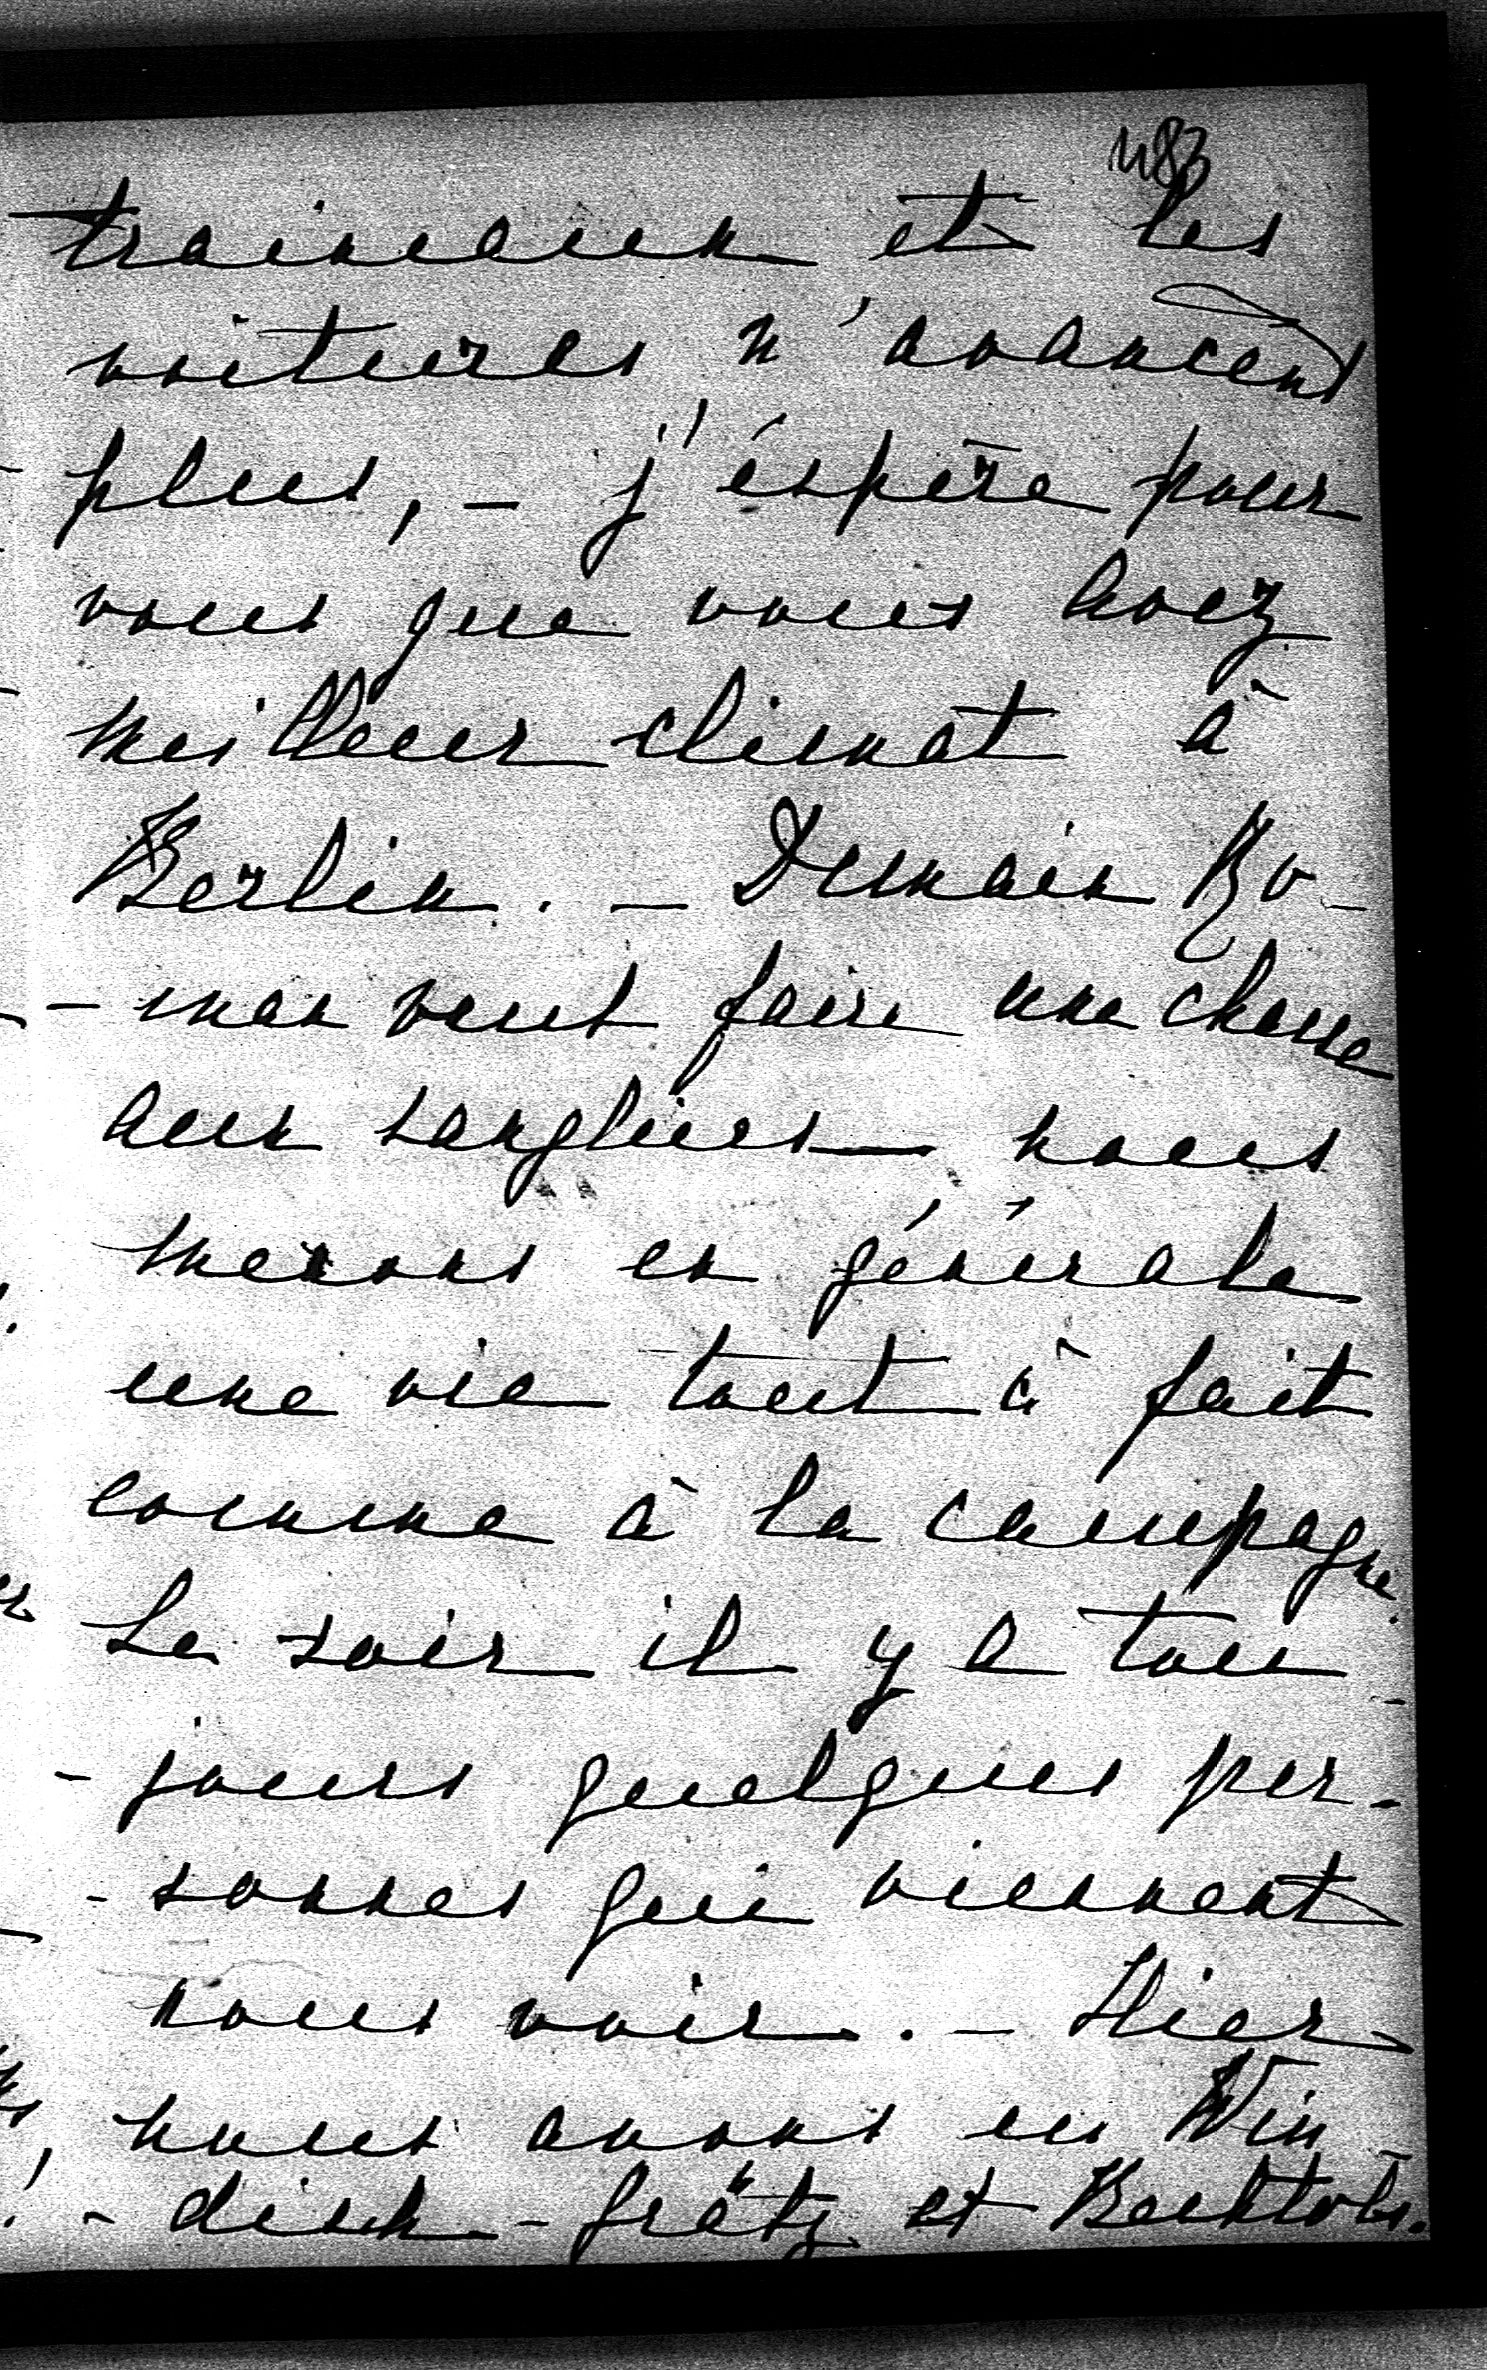 483
traineaux et les
voitures n'avancent
plus, - j'éspère pour
vous que vous avez
meilleur climat à
Berlin. - Demain Ro-
- man veut faire une chasse
aux sangliers - nous
menons en générale
une vie tout à fait
comme à la campagne.
Le soir il y a tou-
- jours quelques per-
- sonnes qui viennent
nous voir. - Hier
nous avons eu Win
- disch-grätz et